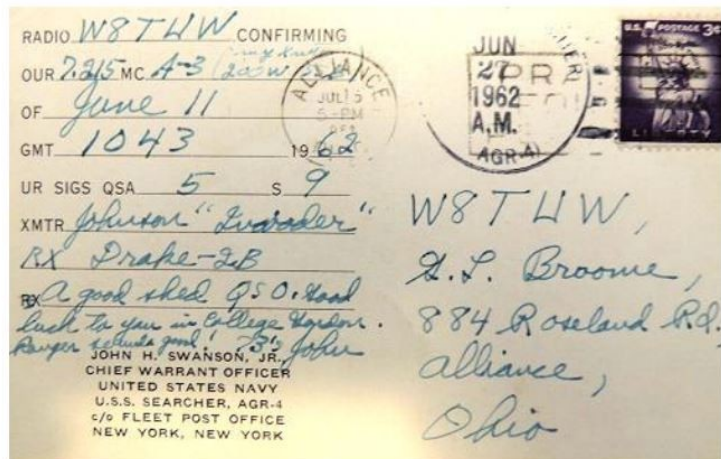 RADIO W8THW CONFIRMING
OUR 7.215 MC A-3 (200W
OF June 11
GMT 1043 1962
UR SIGS QSA 5 S 9
XMTR Johnson "Invader"
RX Drake-2B
A good shed QSO. Good
luck to you in College Gordon.
Ranger sounds good! 73's John
JOHN H. SWANSON, JR.,
CHIEF WARRANT OFFICER
UNITED STATES NAVY
U.S.S. SEARCHER, AGR-4
c/o FLEET POST OFFICE
NEW YORK, NEW YORK
ALLIANCE
JUL 5
PM
JUN
27
1962
A.M.
AGR-4)
U.S. POSTAGE 3¢
LIBERTY
W8THW,
G.L. Broome,
884 Roseland Rd,
Alliance,
Ohio